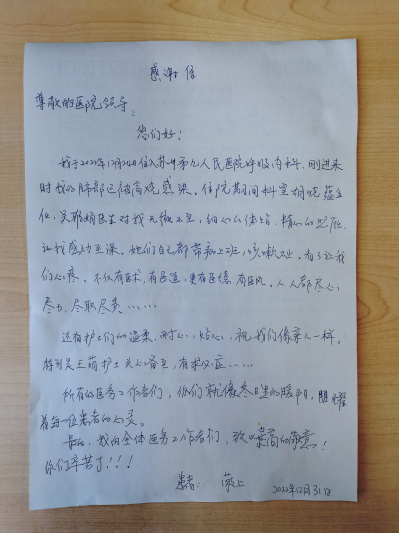 感谢信
尊敬的医院领导:
您们好!
我于2022年12月24日住入苏州第九人民医院呼吸内科,刚进来
时我的肺部已被高烧感染。住院期间科室胡晓蕴主
任,吴 医生对我无微不至,细心的体贴、精心的照顾,
让我感动至深。她们自己都带病上班,咳嗽不止,看了让我
们心疼。不仅有医术,有医道,更有医德,有医风,人人都尽心
尽力,尽职尽责……
还有护士们的温柔,耐心,贴心,视我们像亲人一样。
特别是王萌护士关心备至,有求必应……
所有的医务工作者们,你们就像冬日里的暖阳,照耀
着每一位患者的心灵。
最后,我向全体医务工作者们,致以崇高的敬意!
你们辛苦了!!!
患者: 上
2022年12月31日